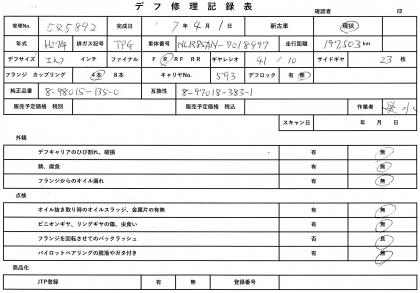 デフ修理記録表
確認者 印
管理No. 585892 完成日 '7年4月1日 新古車 現状
年式 H24 排ガス記号 TPG 車体番号 NLR85AN-7018997 走行距離 197,503km
デフサイズ インチ ファイナル F R RF RR ギヤレシオ 41/10 サイドギヤ 23枚
フランジ カップリング 4本 8本 キャリヤNo. 593 デフロック 有 無
純正品番 8-98015-135-0 互換性 8-97018-383-1
販売予定価格 税別 販売予定価格 税込 作業者
スキャン日 年 月 日
外観
デフキャリアのひび割れ、破損 有 無
錆、腐食 有 無
フランジからのオイル漏れ 有 無
点検
オイル抜き取り時のオイルスラッジ、金属片の有無 有 無
ピニオンギヤ、リングギヤの傷、虫食い 有 無
フランジを回転させてのバックラッシュ 否 良
パイロットベアリングの脱落やガタ付き 有 無
商品化
JTP登録 有 無 登録番号